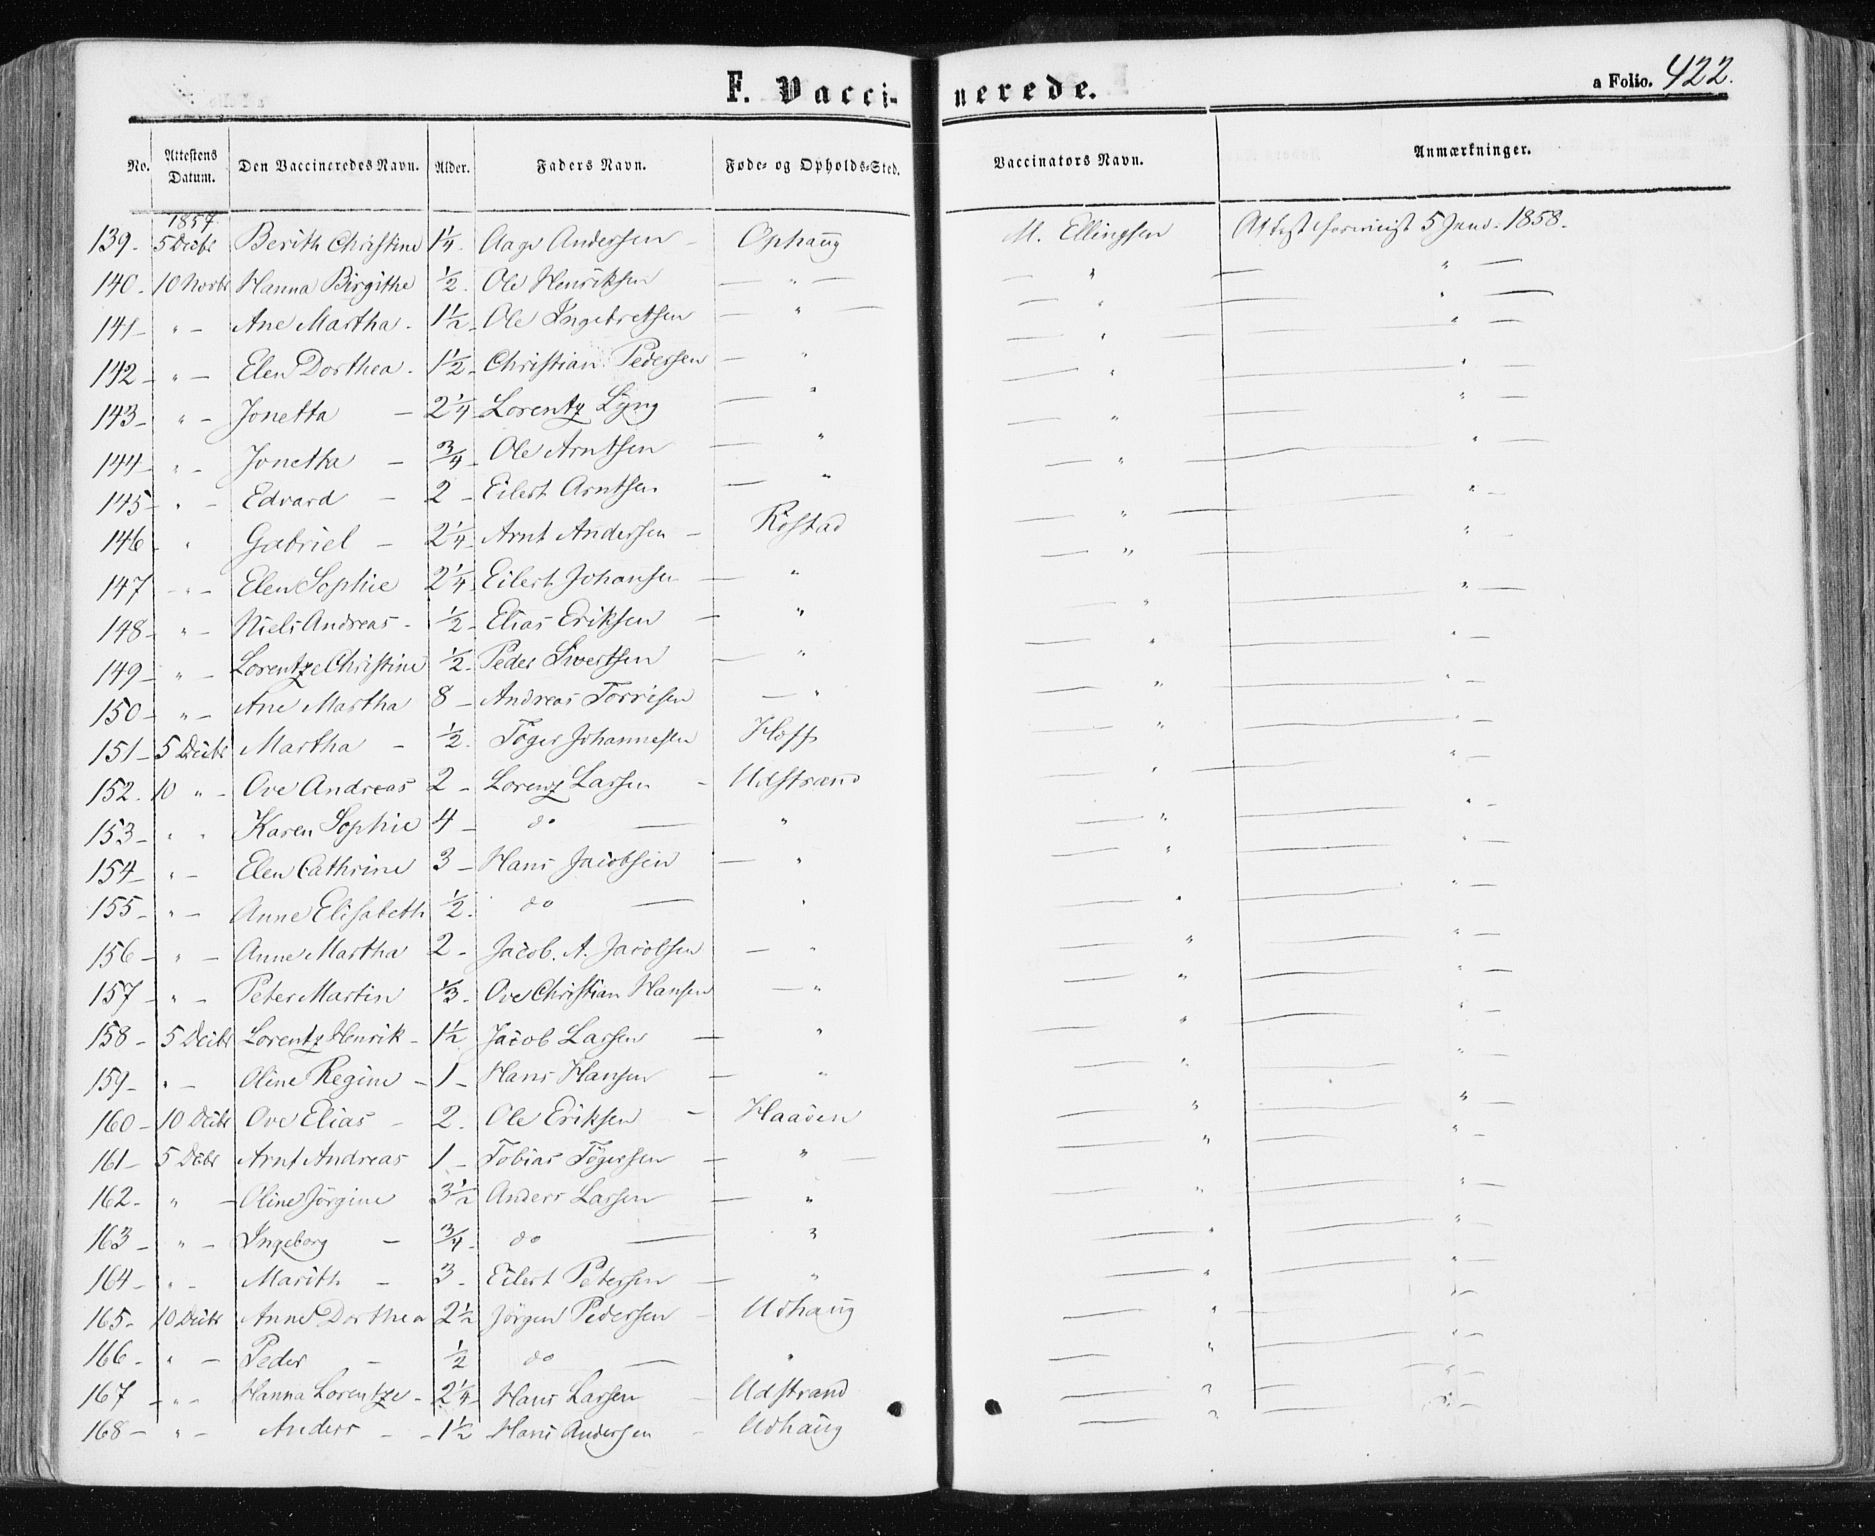 F. Vaccinerede.
a Folio. 422.
No. Attestens Datum. Den Vaccineredes Navn. Alder. Faders Navn. Føde- og Opholds-Sted. Vaccinators Navn. Anmærkninger.
1857.
139. 5 Decbr Berith Christine 1¼. Aage Andersen - Ophaug M. Ellingsen 5 Janr. 1858.
140. 10 Novbr Hanna Birgithe ½. Ole Henriksen — " — — " — " —
141 — " — Ane Martha. 1½. Ole Ingebretsen — " — — " — " —
142 — " — Elen Dorthea. 1½. Christian Pedersen — " — " — "
143 — " — Jonetta — 2¼ Lorentz Lyng — " — " — "
144 — " — Jonetta — ¾ Ole Arntsen — " — " — "
145 " — Edvard — 2 — Eilert Arntsen — " — " — "
146 — " Gabriel — 2¼ Arnt Andersen — Röstad — " — " —
147 — " — Elen Sophie 2¼ Eilert Johansen — " — " — "
148 — " — Niels Andreas - ½. Elias Eriksen — " — " — " —
149 — " — Lorentze Christine ½. Peder Sivertsen — " — " — "
150 — " — Ane Martha 8 — Andreas Torrisen — " — " — "
151 — 5 Decbr Martha — ½. Töger Johannesen Hoff — " — "
152. 10 " — Ove Andreas 2 — Lorenz Larsen — Udstrand — " — "
153 — " " Karen Sophie 4 — do — " — " — " —
154 — " — Elen Cathrine 3 — Hans Jacobsen — " — " — " —
155 — " — Anne Elisabeth ½. do — " — " — " —
156 — " — Anne Martha 2 — Jacob. A. Jacobsen — " — " — " —
157 — " — Peter Martin ⅓. Ove Christian Hansen — " — " — " —
158 — 5 Decbr Lorentz Henrik — 1½ Jacob Larsen — " — " — " —
159 — " — Oline Regine — 1 — Hans Hansen — " — " — " —
160 — 10 Decbr Ove Elias — 2. Ole Eriksen — Haaven — " — " —
161 — 5 Decbr Arnt Andreas 1 — Tobias Tögersen — " — — " — " —
162. " — Oline Jörgine 3½ Anders Larsen — " — " — " —
163 — " — Ingeborg — ¾. do — " — " — " —
164 — " — Marith — 3 — Eilert Petersen — " — " — " —
165. 10 Decbr Anne Dorthea 2½ Jörgen Pedersen — Udhaug — " — " —
166. " — Peder — ½ do — " — " — " —
167 — " — Hanna Lorentze — 2¼ Hans Larsen — Udstrand — " — " —
168 — " — Anders — 1½ Hans Andersen — Udhaug — " — " —